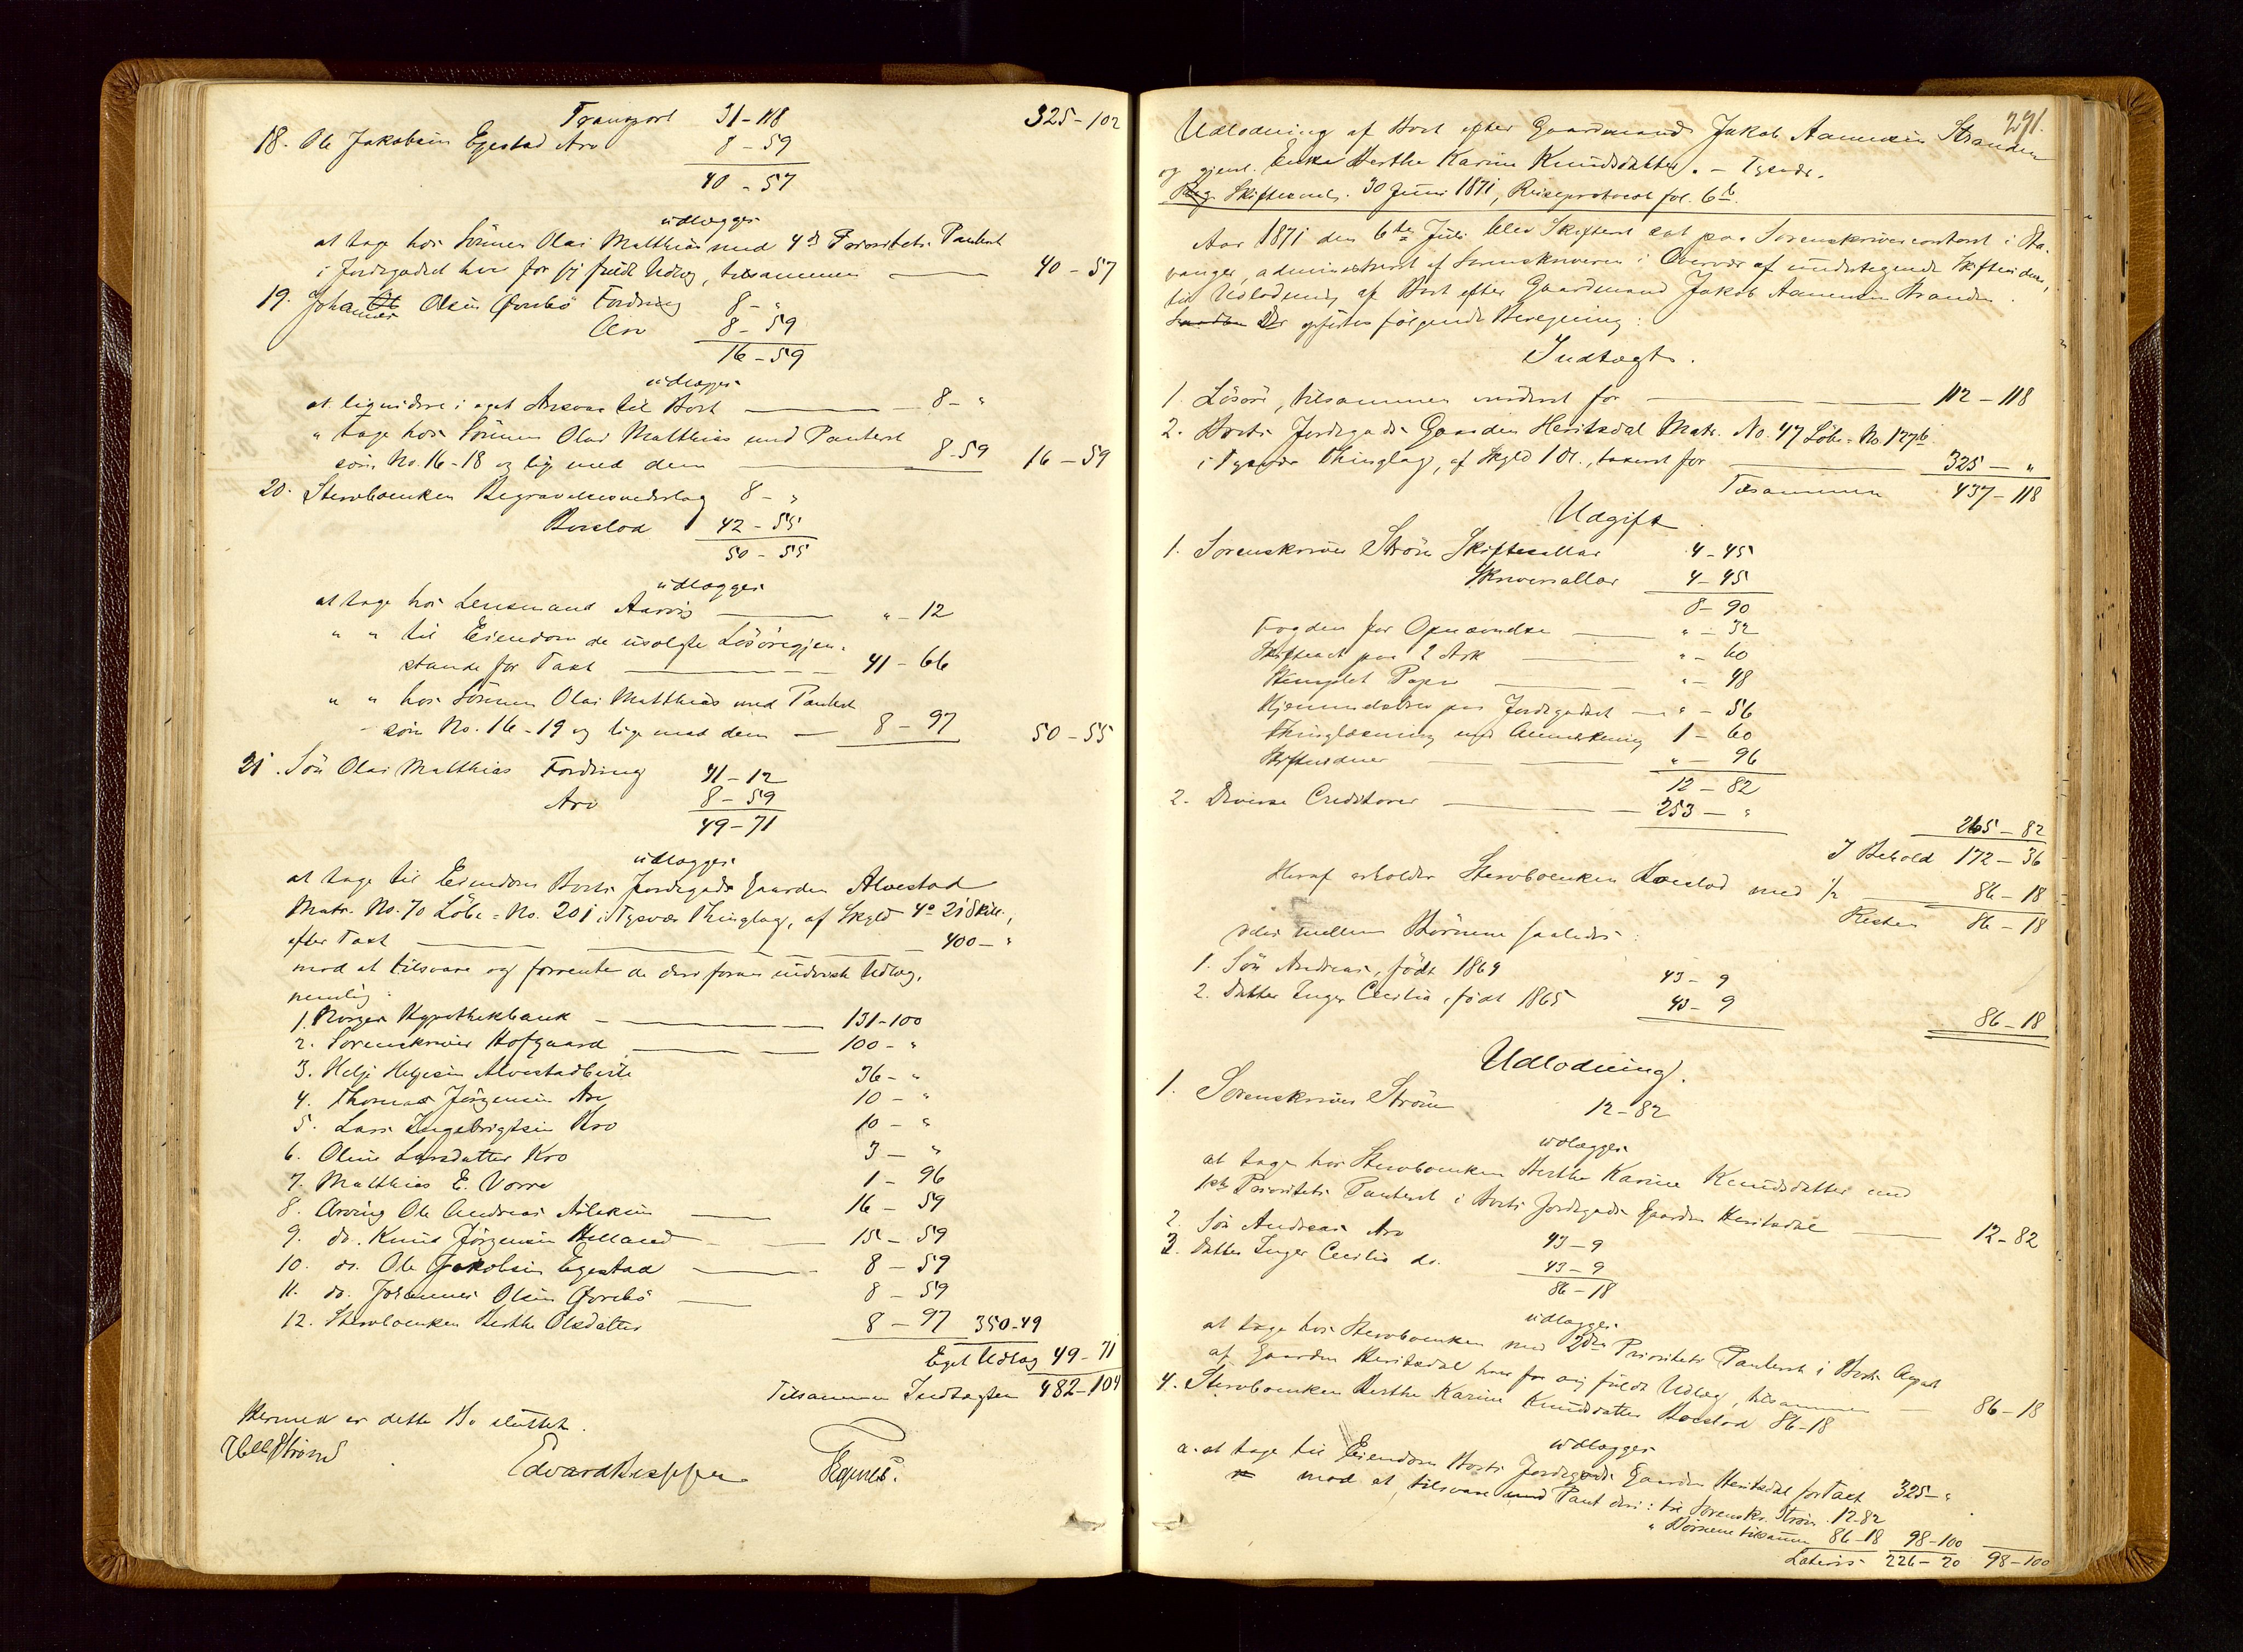 Transport 31-118 325-102
18. Ole Jakobsen Egestad Arv 8-59
40-57
udlægges
at tage hos Sönnen Olai Matthias med 4de Prioritets Panteret
i Jordegodset her for sig fuldt Udlæg, tilsammen 40-57
19. Johannes Olsen Øvrebö Fordring 8-"
Arv 8-59
16-59
udlægges
at liquidere i eget Ansvar til Boet 8-"
" tage hos Sönnen Olai Matthias med Panteret
som No. 16-18 og lige med dem 8-59 16-59
20. Stervboenken Begravelsesvederlag 8-"
Boeslod 42-55
50-55
udlægges
at tage hos Lensmand Aarvig "-12
" " til Eiendom de usolgte Lösöregjen-
stande for Taxt 41-66
" " hos Sönnen Olai Matthias med Panteret
som No. 16-19 og lige med dem 8-97 50-55
21. Sön Olai Matthias Fordring 41-12
Arv 8-59
49-71
udlægges
at tage til Eiendom Boets Jordegods Gaarden Alvestad
Matr. No. 70 Löbe-No. 201 i Tysvær Thinglag, af Skyld 4o 21 Skill.,
efter Taxt 400-"
mod at tilsvare og forrente de deri foran indviste Udlæg,
nemlig:
1. Norges Hypothekbank 131-100
2. Sorenskriver Hofgaard 100-"
3. Helje Helgesen Alvestadbeite 36-"
4. Thomas Jörgensen Are 10-"
5. Lars Ingebrigtsen Kro 10-"
6. Oline Larsdatter Kro 3-"
7. Matthias E. Vorre 1-96
8. Arving Ole Andreas Aslaksen 16-59
9. do. Knud Jörgensen Helland 15-59
10. do. Ole Jakobsen Egestad 8-59
11. do. Johannes Olsen Øvrebö 8-59
12. Stervboenken Berthe Olsdatter 8-97 350-49
Eget Udlæg 49-71
Tilsammen Indtægten 482-104
Hermed er dette Bo sluttet.
Strøm
Edvard
291.
Udlodning af Boet efter Gaardmand Jakob Aamundsen Stranden
og gjenl. Enke Berthe Karine Knudsdatter. - Tysvær.
Beg. Skiftesaml. 30 Juni 1871, Reiseprotocol fol. 6b.
Aar 1871 den 6te Juli blev Skifteret sat paa Sorenskrivercontoret i Sta-
vanger, administreret af Sorenskriveren i Overvær af undertegnede Skiftevidner,
til Udlodning af Boet efter Gaardmand Jakob Aamundsen Stranden.
Der opförtes fölgende Beregning:
Indtægt.
1. Lösöre, tilsammen vurderet for 112-118
2. Boets Jordegods Gaarden Heritsdal Matr. No. 47 Löbe-No. 127b
i Tysvær Thinglag, af Skyld 1 Ort., taxeret for 325-"
Tilsammen 437-118
Udgift.
1. Sorenskriver Ström Skiftesallar 4-45
Skriversallar 4-45
8-90
Fogden for Opnævnelse "-32
Skifteact paa 2 Ark "-60
Stemplet Papir "-48
Hjemmelsbrev paa Jordegodset "-56
Thinglæsning med Anmærkning 1-60
Skiftevidner "-96
12-82
2. Diverse Creditorer 253-"
265-82
I Behold 172-36
Heraf erholder Stervboenken Boeslod med 1/2 86-18
Resten 86-18
deles mellem Börnene saaledes:
1. Sön Andreas, födt 1869 43-9
2. Datter Inger Cecilia, födt 1865 43-9
86-18
Udlodning.
1. Sorenskriver Ström 12-82
udlægges
at tage hos Stervboenken Berthe Karine Knudsdatter med
1ste Prioritets Panteret i Boets Jordegods Gaarden Heritsdal 12-82
2. Sön Andreas Arv 43-9
3. Datter Inger Cecilia do. 43-9
86-18
udlægges
at tage hos Stervboenken med 2den Prioritets Panteret i Boets
af Gaarden Heritsdal hver for sig fuldt Udlæg, tilsammen 86-18
4. Stervboenken Berthe Karine Knudsdatter Boeslod 86-18
udlægges
a. at tage til Eiendom Boets Jordegods Gaarden Heritsdal for Taxt 325-"
mod at tilsvare med Pant deri: til Sorenskr. Ström 12-82
" Börnene tilsammen 86-18 98-100
Lateris 226-20 98-100